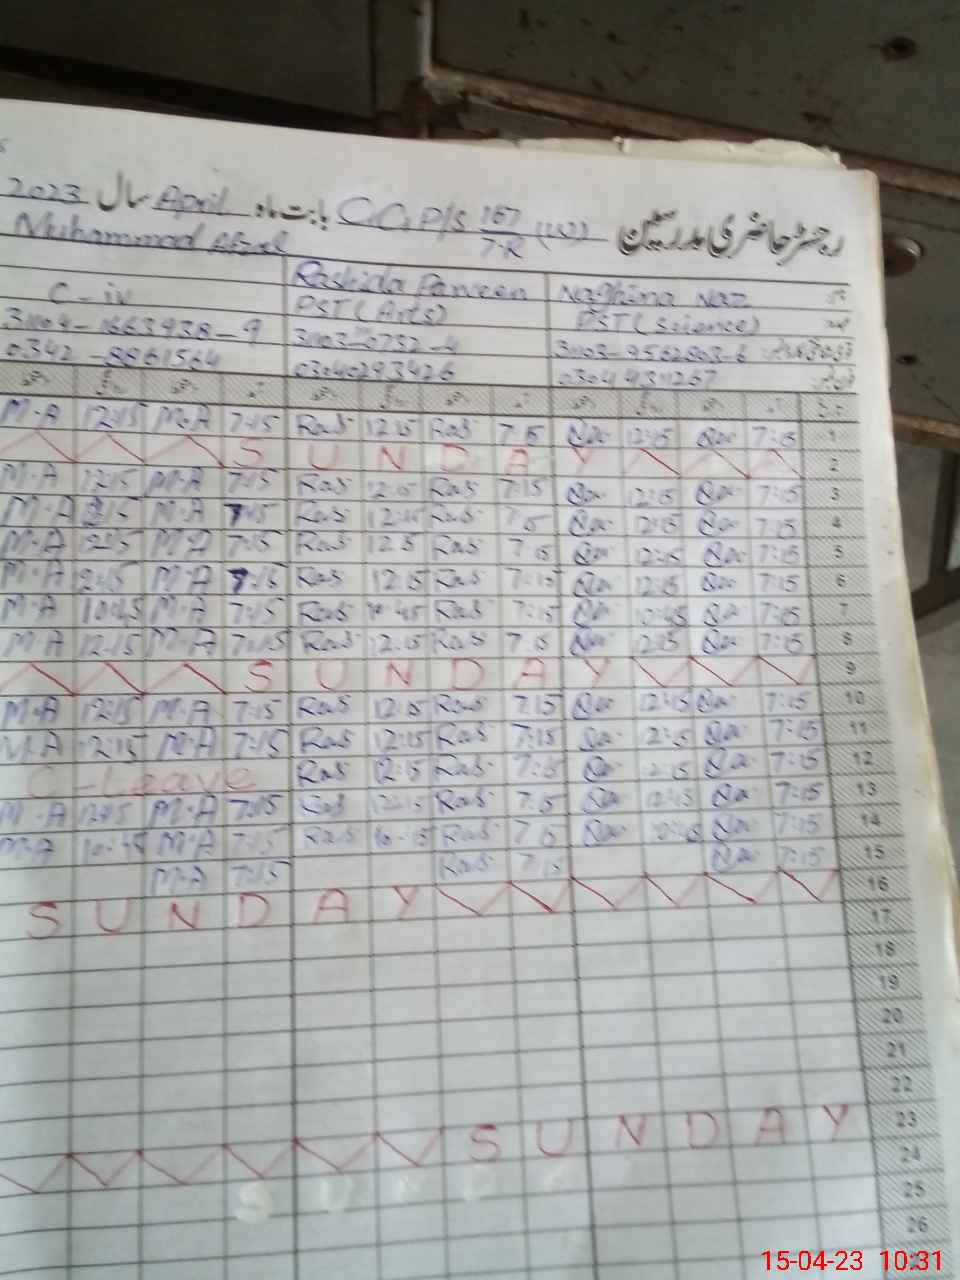 رجسٹر حاضری مدرسین G.G.P/S 167/7-R بابت ماہ April سال 2023
Muhammad Afzal Rashida Parveen Naghina Naz
C-iv PST (Arts) PST (Science)
31104-1663938-9 31103-9562803-6
0342-8861564 03040293426 03044311267
M.A 12:15 M.A 7:15 Ras 12:15 Ras 7:15 12:15 7:15 1
S U N D A Y 2
M.A 12:15 M.A 7:15 Ras 12:15 Ras 7:15 12:15 7:15 3
M.A 12:15 M.A 7:15 Ras 12:15 Ras 7:15 12:15 7:15 4
M.A 12:15 M.A 7:15 Ras 12:15 Ras 7:15 12:15 7:15 5
M.A 12:15 M.A 7:15 Ras 12:15 Ras 7:15 12:15 7:15 6
M.A 10:45 M.A 7:15 Ras 10:45 Ras 7:15 10:45 7:15 7
M.A 12:15 M.A 7:15 Ras 12:15 Ras 7:15 12:15 7:15 8
S U N D A Y 9
M.A 12:15 M.A 7:15 Ras 12:15 Ras 7:15 12:15 7:15 10
M.A 12:15 M.A 7:15 Ras 12:15 Ras 7:15 12:15 7:15 11
C-Leave Ras 12:15 Ras 7:15 12:15 7:15 12
M.A 12:15 M.A 7:15 Ras 12:15 Ras 7:15 12:15 7:15 13
M.A 10:45 M.A 7:15 Ras Ras 7:15 10:45 7:15 14
M.A 7:15 Ras 7:15 7:15 15
S U N D A Y 16
17
18
19
20
21
22
S U N D A Y 23
24
25
26
15-04-23 10:31